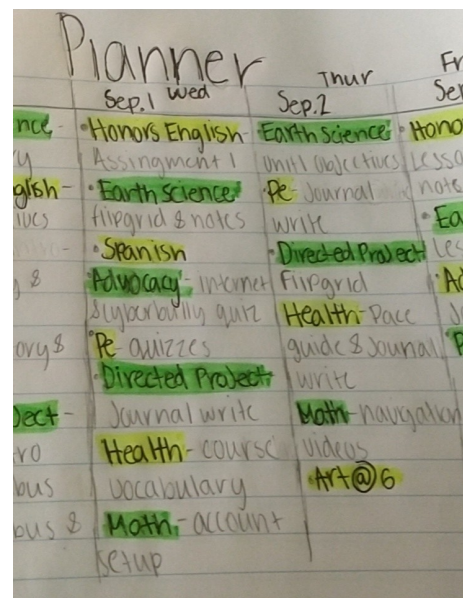 Planner
nce-
y
glish-
ives
-
y &
ory &
ject-
ro
bus
bus &
Sep. 1 Wed
• Honors English-
Assingment 1
• Earth science-
flipgrid & notes
• Spanish
Advocacy- internet
& cyberbully quiz
Pe- quizzes
• Directed Project-
Journal write
Health- course
vocabulary
Math- account
setup
Thur
Sep. 2
Earth science-
unit 1 objectives
Pe- Journal
write
• Directed Project-
flipgrid
Health- Pace
guide & Journal
write
Math- navigation
videos
• Art @ 6
Fr
Sep
• Hono
Lesso
note
• Ea
Les
• Ad
Jo
P